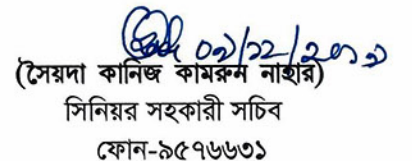 ০১/১২/২০১১
(সৈয়দা কানিজ কামরুন নাহার)
সিনিয়র সহকারী সচিব
ফোন-৯৫৭৬৬৩১